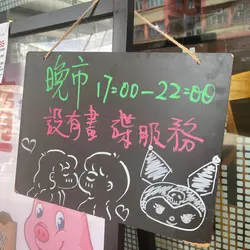 晚市 17:00-22:00
設有畫 碟服務